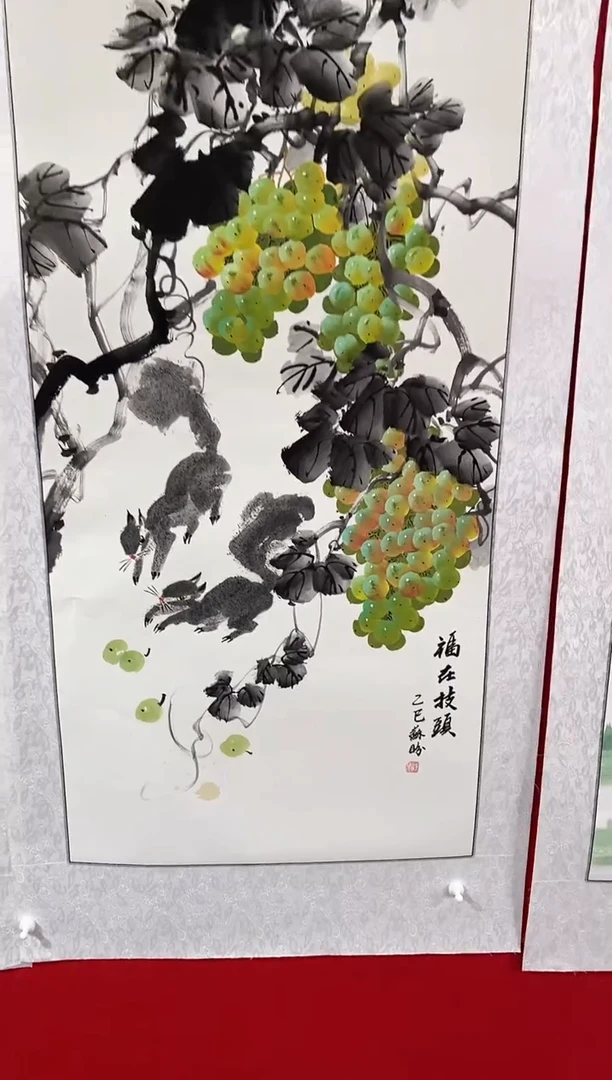 福在枝頭
乙巳蘇